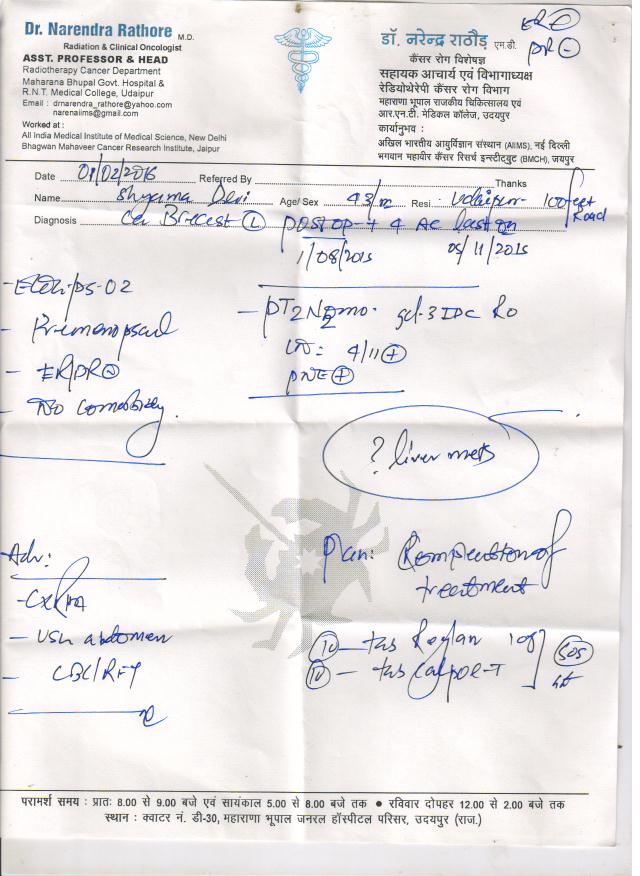 Dr. Narendra Rathore M.D.
Radiation & Clinical Oncologist
ASST. PROFESSOR & HEAD
Radiotherapy Cancer Department
Maharana Bhupal Govt. Hospital &
R.N.T. Medical College, Udaipur
Email : drnarendra_rathore@yahoo.com
narenaiims@gmail.com
Worked at :
All India Medical Institute of Medical Science, New Delhi
Bhagwan Mahaveer Cancer Research Institute, Jaipur
ER
PR
डॉ. नरेन्द्र राठौड़ एम.डी.
कैंसर रोग विशेषज्ञ
सहायक आचार्य एवं विभागाध्यक्ष
रेडियोथेरेपी कैंसर रोग विभाग
महाराणा भूपाल राजकीय चिकित्सालय एवं
आर.एन.टी. मेडिकल कॉलेज, उदयपुर
कार्यानुभव :
अखिल भारतीय आयुर्विज्ञान संस्थान (AIIMS), नई दिल्ली
भगवान महावीर कैंसर रिसर्च इन्स्टीट्युट (BMCH), जयपुर
Date 01/02/2016 Referred By Thanks
Name Shyama Devi Age/ Sex 43/ Resi. Udaipur 100 feet Road
Diagnosis Ca Breast L POST OP + 4 AC last on
1/08/2015 05/11/2015
- Premenopsaul
- ER/PR
- No comorbidy.
- pT2N2M0. gd-3 IDC
LN: 4/11 +
PNE +
? liver mets
Adv:
- CXR PA
- USG abdomen
- CBC/RFT
Plan: Completion of
treatment
10 — tab Reglan 10
10 — tab Calpol-T
SOS
परामर्श समय : प्रातः 8.00 से 9.00 बजे एवं सायंकाल 5.00 से 8.00 बजे तक ● रविवार दोपहर 12.00 से 2.00 बजे तक
स्थान : क्वाटर नं. डी-30, महाराणा भूपाल जनरल हॉस्पीटल परिसर, उदयपुर (राज.)